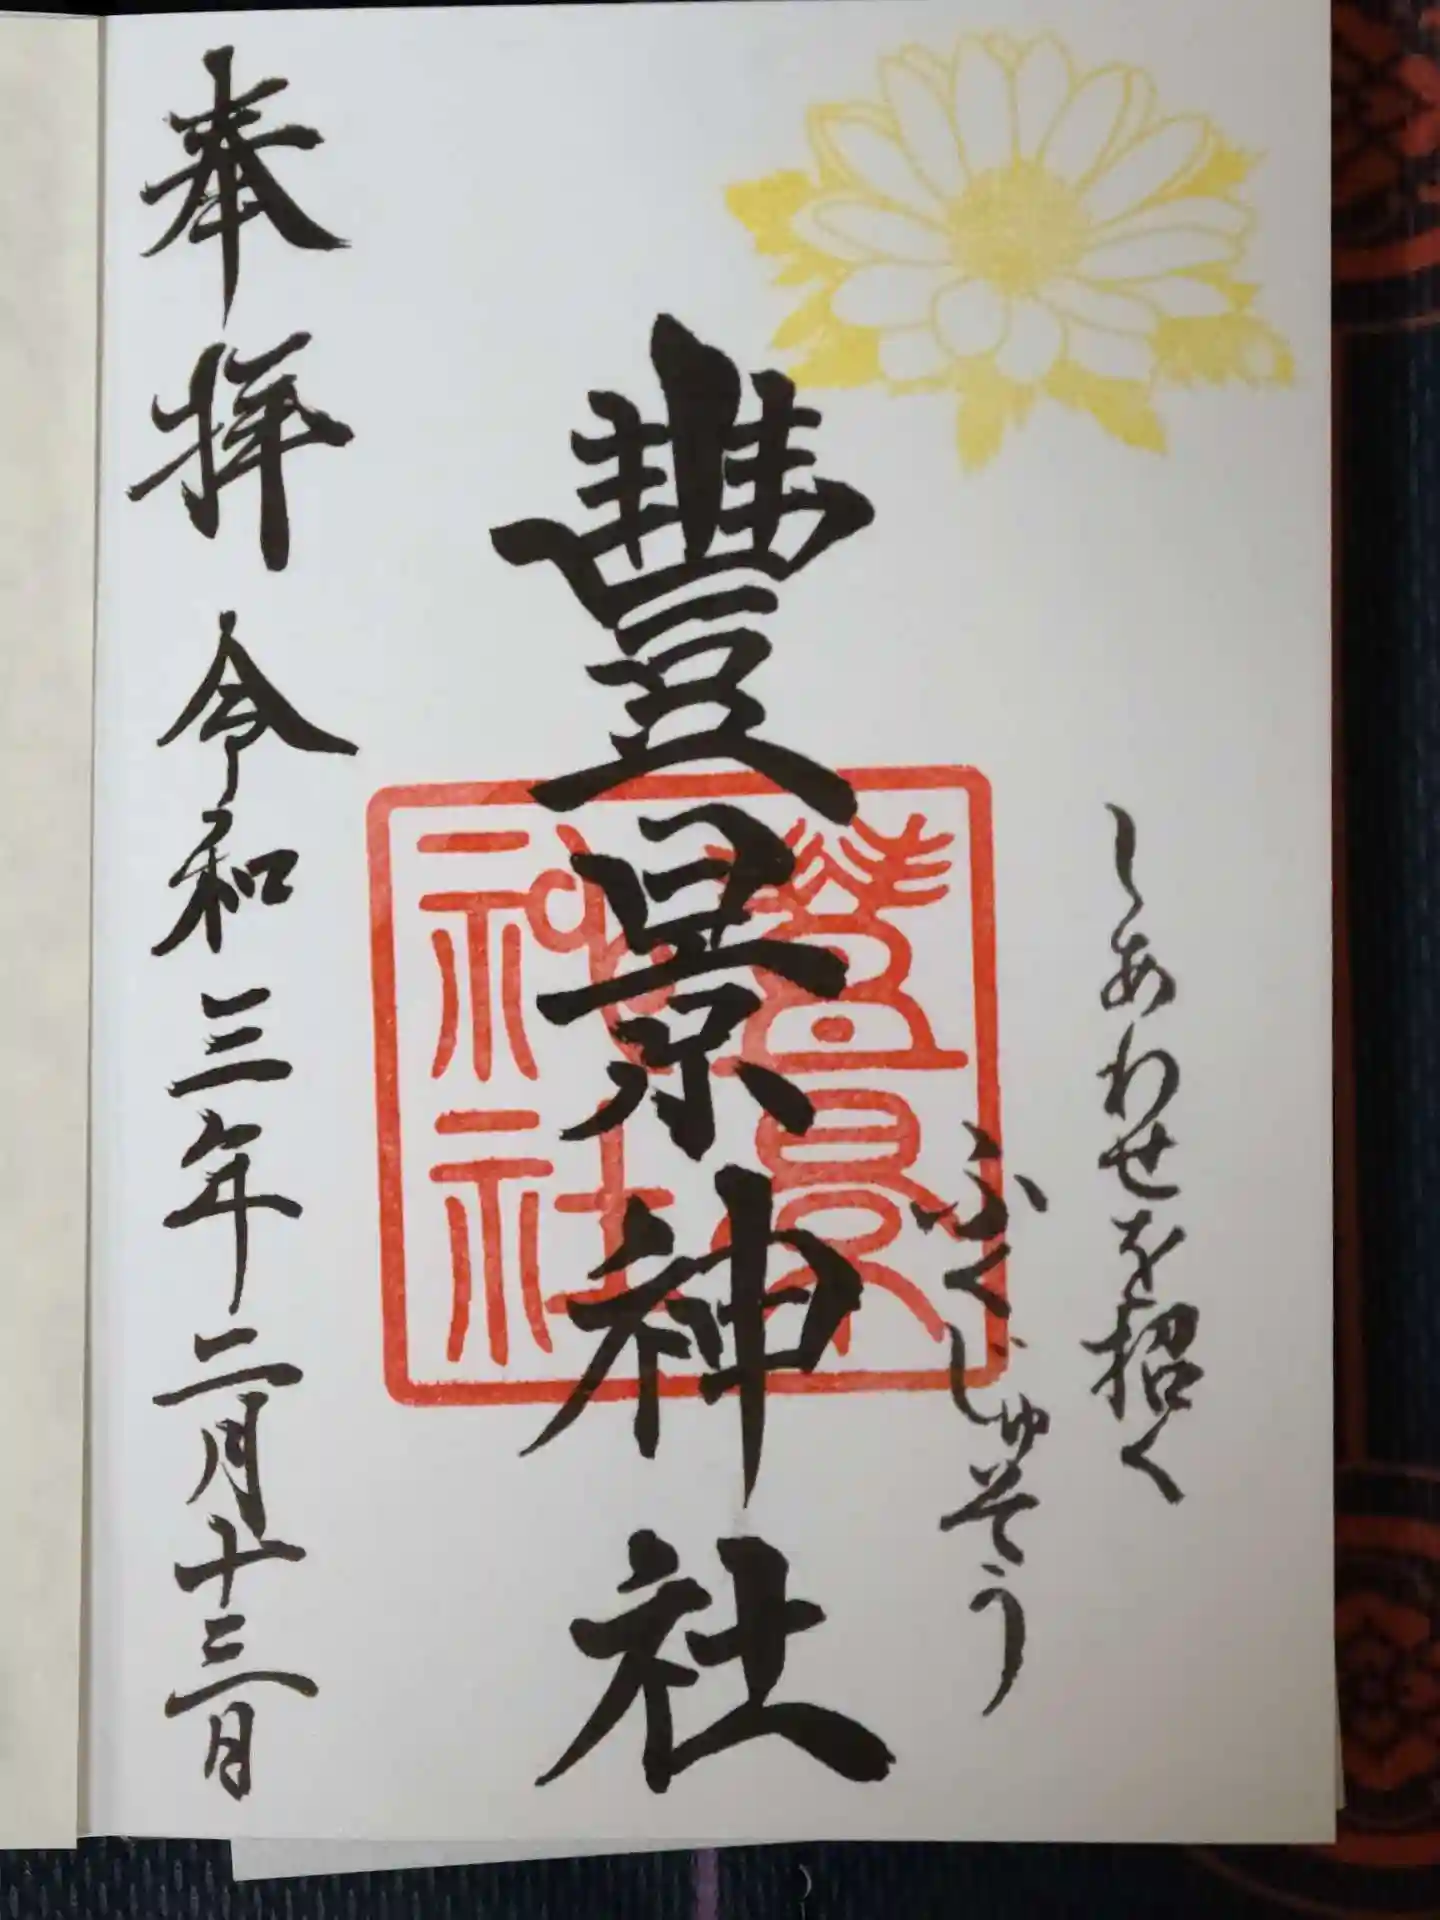 しあわせを招く
ふくじゅそう
豐景神社
豊景
神社
奉拝 令和三年二月十三日